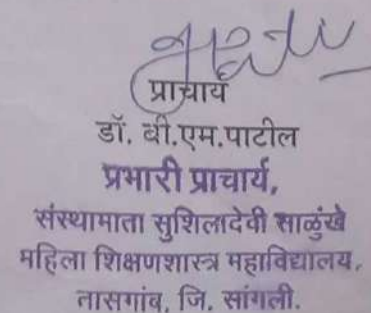 प्राचार्य
डॉ. बी.एम.पाटील
प्रभारी प्राचार्य,
संस्थामाता सुशिलादेवी साळुंखे
महिला शिक्षणशास्त्र महाविद्यालय,
तासगांव, जि. सांगली.